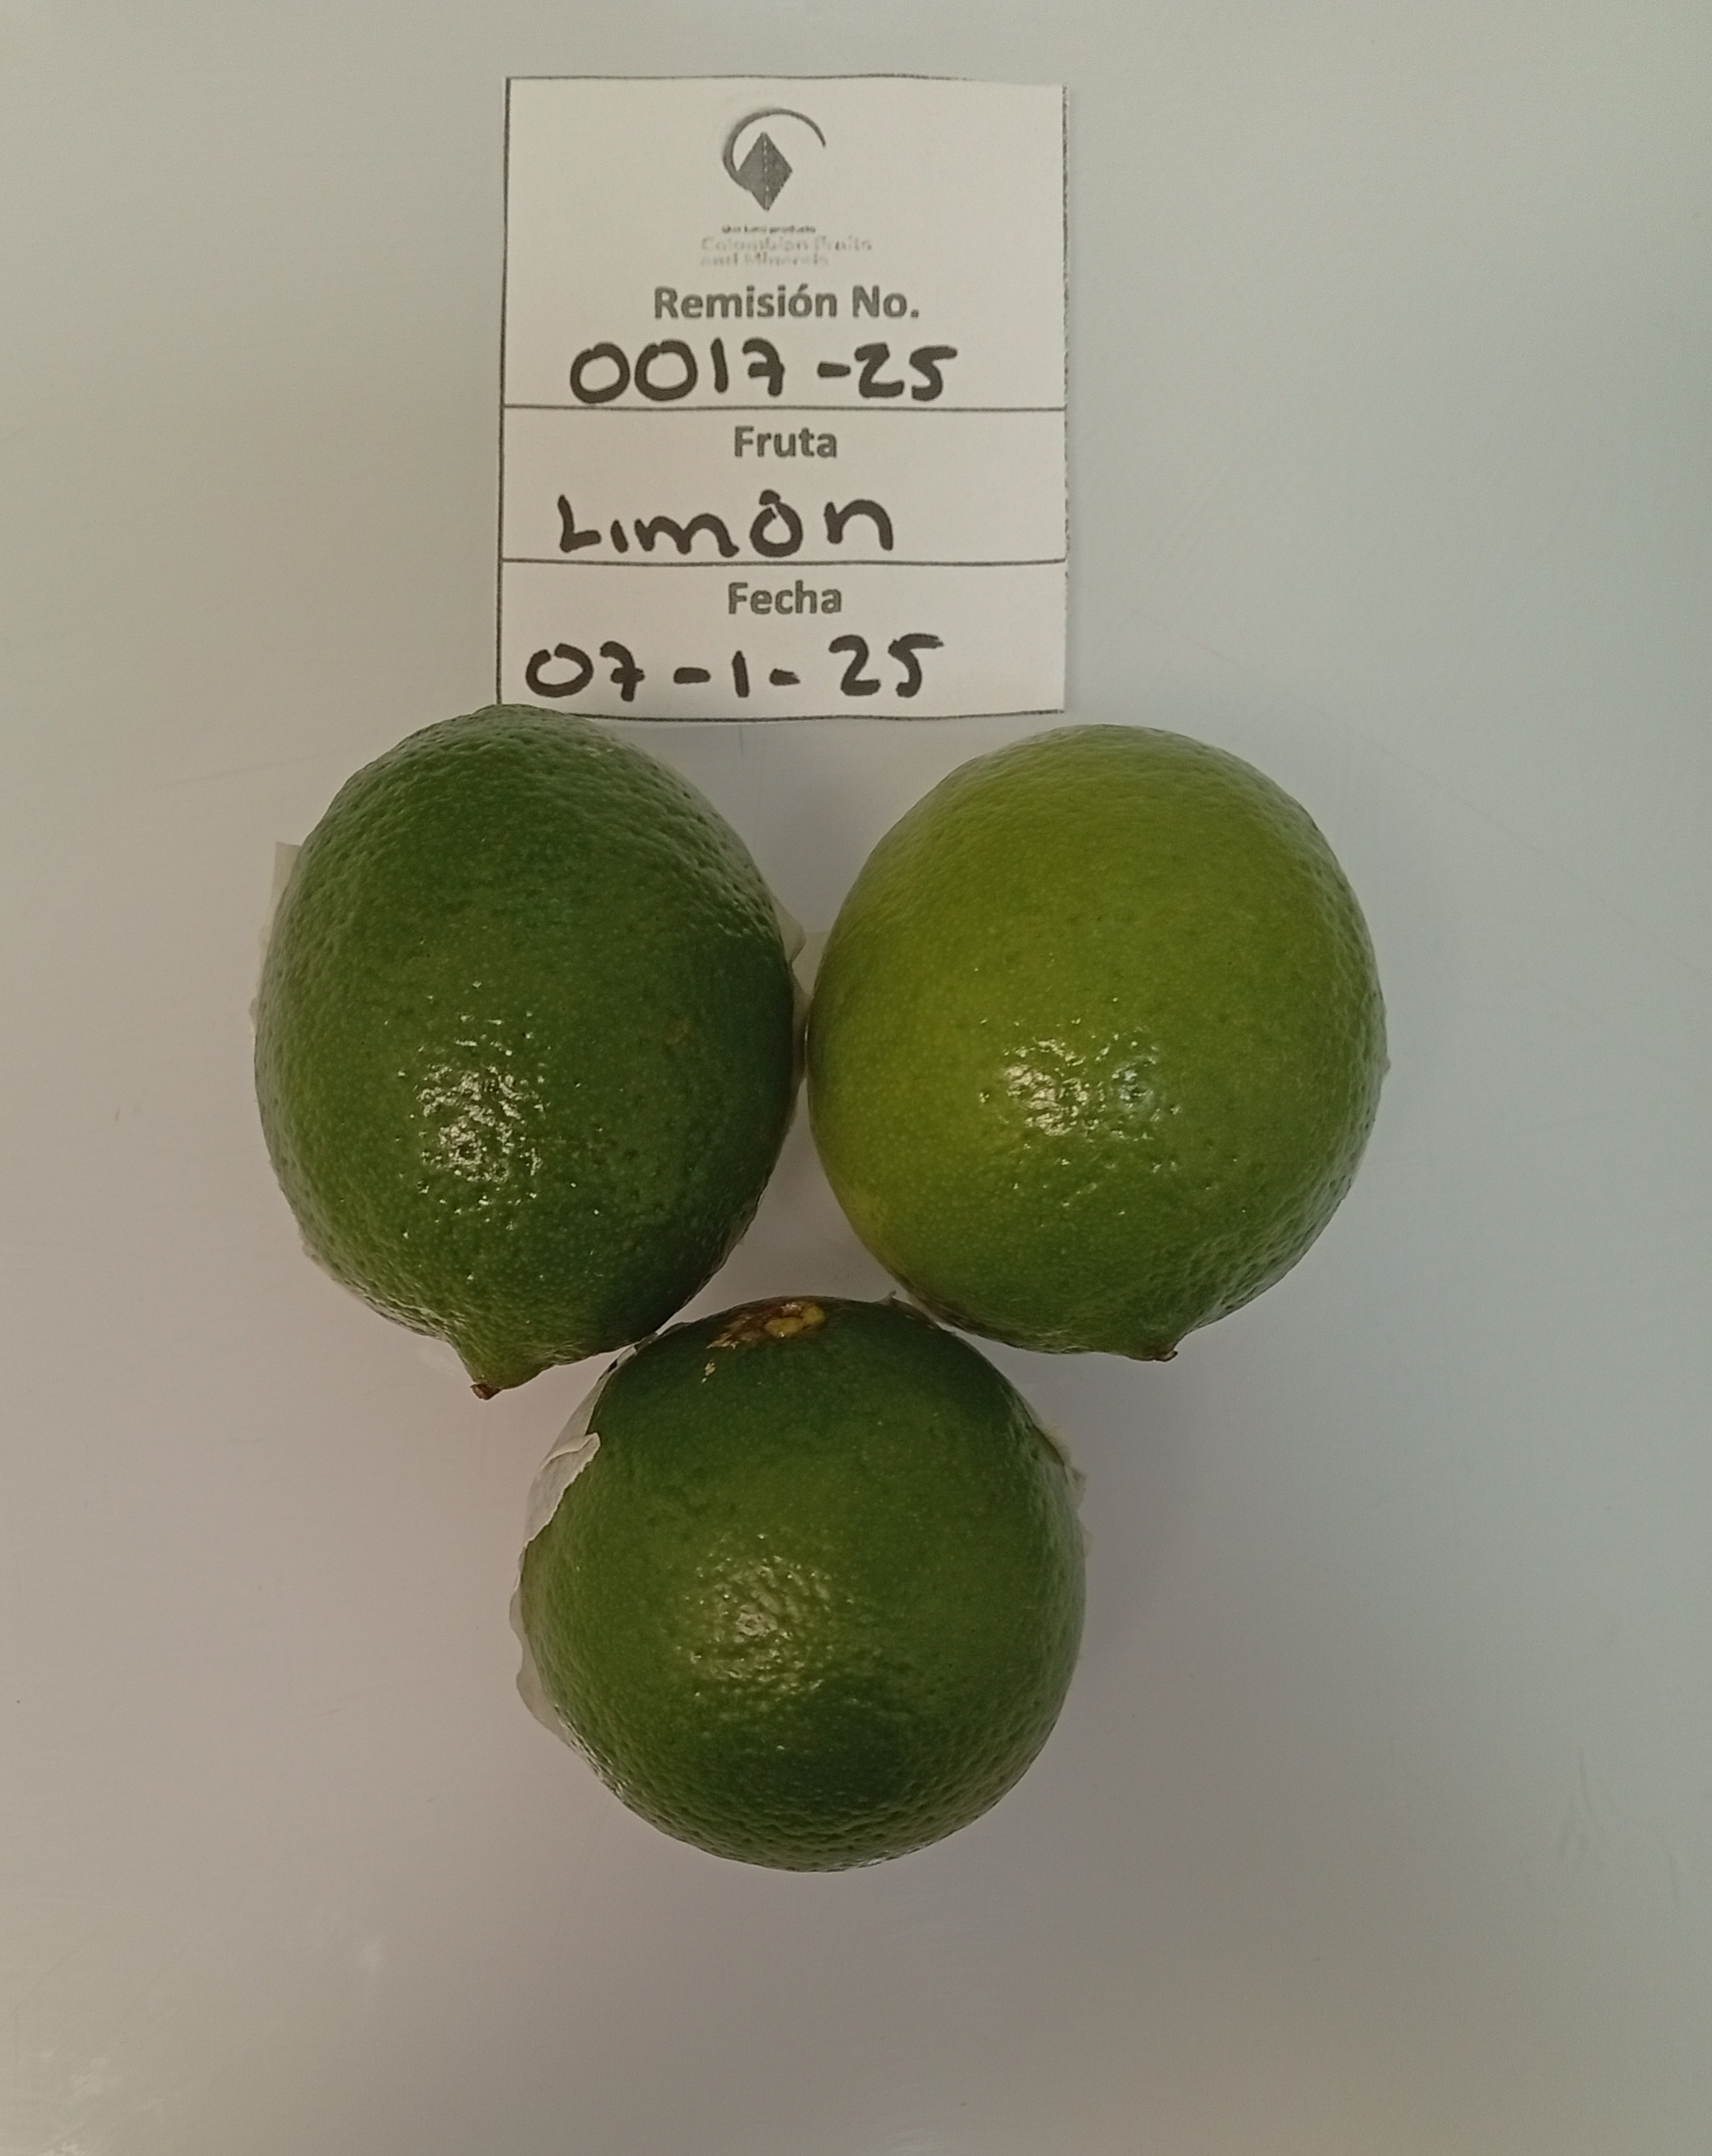 Colombian Fruits
and Minerals
Remisión No.
0017-25
Fruta
Limón
Fecha
07-1-25